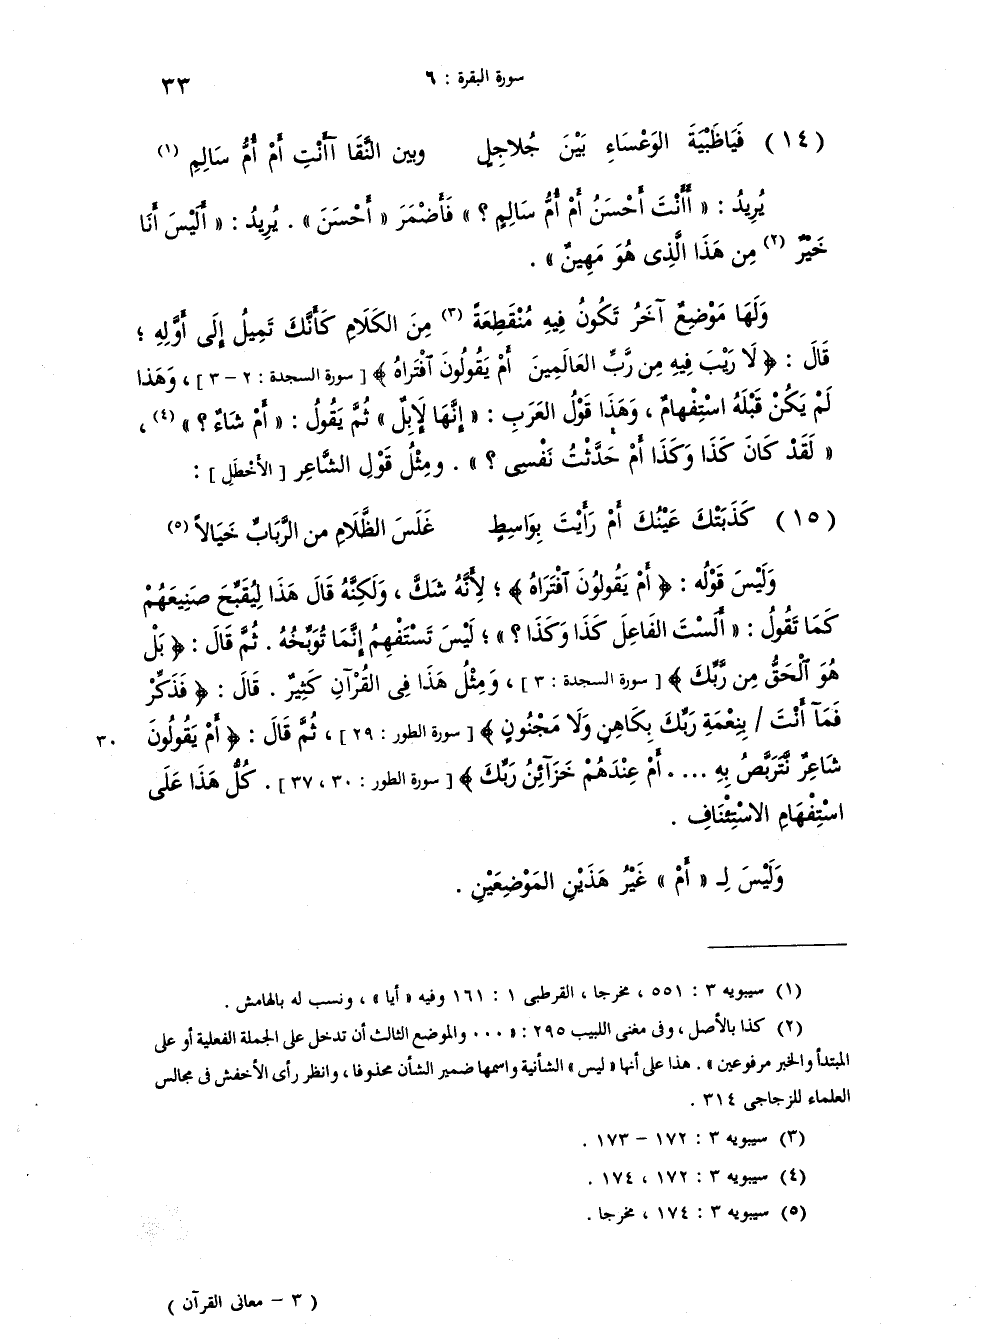 سورة البقرة : ٦ ٣٣
(١٤) فَيَاظَبْيَةَ الوَعْسَاءِ بَيْنَ جُلاجِلٍ وبين النَّقَا آأَنْتِ أَمْ أُمُّ سَالِمِ (١)
يُرِيدُ : « أَأَنْتَ أَحْسَنُ أَمْ أُمُّ سَالِمٍ ؟ » فَأَضْمَرَ « أَحْسَنَ » . يُرِيدُ : « أَلَيْسَ أَنَا
خَيْرٌ (٢) مِن هَذَا الَّذِى هُوَ مَهِينٌ » .
وَلَهَا مَوْضِعٌ آخَرُ تَكُونُ فِيهِ مُنْقَطِعَةً (٣) مِنَ الكَلَامِ كَأَنَّكَ تَمِيلُ إِلَى أَوَّلِهِ ؛
قَالَ : ﴿ لَا رَيْبَ فِيهِ مِن رَّبِّ العَالَمِينَ أَمْ يَقُولُونَ ٱفْتَراهُ ﴾ [ سورة السجدة : ٢ – ٣ ] ، وَهَذا
لَمْ يَكُنْ قَبْلَهُ اسْتِفْهامٌ ، وَهَذَا قَوْلُ العَرَبِ : « إِنَّهَا لَإِبِلٌ » ثُمَّ يَقُولُ : « أَمْ شَاءٌ ؟ » (٤) ،
« لَقَدْ كَانَ كَذَا وَكَذَا أَمْ حَدَّثْتُ نَفْسِى ؟ » . ومِثْلُ قَوْلِ الشَّاعِرِ [ الأَخْطَلِ ] :
(١٥) كَذَبَتْكَ عَيْنُكَ أَمْ رَأَيْتَ بِوَاسِطٍ غَلَسَ الظَّلَامِ من الرَّبَابِ خَيَالاً (٥)
وَلَيْسَ قَوْلُه : ﴿ أَمْ يَقُولُونَ ٱفْتَراهُ ﴾ ؛ لِأَنَّهُ شَكَّ ، وَلَكِنَّهُ قَالَ هَذَا لِيُقَبِّحَ صَنِيعَهُمْ
كَمَا تَقُولُ : « أَلَسْتَ الفَاعِلَ كَذَا وَكَذَا ؟ » ؛ لَيْسَ تَسْتَفْهِمُ إِنَّمَا تُوَبِّخُهُ . ثُمَّ قَالَ : ﴿ بَلْ
هُوَ ٱلْحَقُّ مِن رَّبِّكَ ﴾ [ سورة السجدة : ٣ ] ، وَمِثْلُ هَذَا فِى القُرْآنِ كَثِيرٌ . قَالَ : ﴿ فَذَكِّرْ
فَمَآ أَنْتَ / بِنِعْمَةِ رَبِّكَ بِكَاهِنٍ وَلَا مَجْنُونٍ ﴾ [ سورة الطور : ٢٩ ] ، ثُمَّ قَالَ : ﴿ أَمْ يَقُولُونَ ٣٠
شَاعِرٌ نَّتَرَبَّصُ بِهِ .... أَمْ عِنْدَهُمْ خَزَآئِنُ رَبِّكَ ﴾ [ سورة الطور : ٣٠ ، ٣٧ ] . كُلُّ هَذَا عَلَى
اسْتِفْهَامِ الاسْتِئْنَافِ .
وَلَيْسَ لِـ « أَمْ » غَيْرُ هَذَيْنِ المَوْضِعَيْنِ .
(١) سيبويه ٣ : ٥٥١ ، مخرجا ، القرطبى ١ : ١٦١ وفيه « أيا » ، ونسب له بالهامش .
(٢) كذا بالأصل ، وفى مغنى اللبيب ٢٩٥ : « ... والموضع الثالث أن تدخل على الجملة الفعلية أو على
المبتدأ والخبر مرفوعين » . هذا على أنها « ليس » الشأنية واسمها ضمير الشأن محذوفا ، وانظر رأى الأخفش فى مجالس
العلماء للزجاجى ٣١٤ .
(٣) سيبويه ٣ : ١٧٢ – ١٧٣ .
(٤) سيبويه ٣ : ١٧٢ ، ١٧٤ .
(٥) سيبويه ٣ : ١٧٤ ، مخرجا .
( ٣ – معانى القرآن )